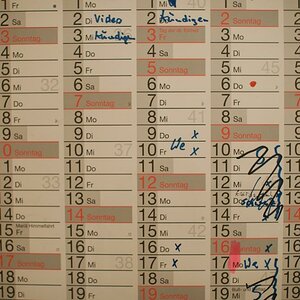 1 Fr
2 Sa
3 Sonntag
4 Mo
5 Di
6 Mi 32
7 Do
8 Fr
9 Sa
0 Sonntag
1 Mo
2 Di
3 Mi 33
4 Do
5 Fr Mariä Himmelfahrt
6 Sa
7 Sonntag
8 Mo
9 Di
1 Mo
2 Di Video
3 Mi kündigen
4 Do
5 Fr
6 Sa
7 Sonntag
8 Mo
9 Di
10 Mi 37
11 Do
12 Fr
13 Sa
14 Sonntag
15 Mo
16 Di
17 Mi 38
18 Do
19 Fr
2 Do kündigen
3 Fr Tag der dt. Einheit
4 Sa
5 Sonntag
6 Mo
7 Di
8 Mi 41
9 Do x
10 Fr We x
11 Sa
12 Sonntag
13 Mo
14 Di
15 Mi 42
16 Do x
17 Fr x
18 Sa
19 Sonntag
1 Sa
2 Sonntag
3 Mo
4 Di
5 Mi 45
6 Do
7 Fr
8 Sa
9 Sonntag
10 Mo
11 Di
12 Mi
13 Do
14 Fr
15 Sa
16 Sonntag x
17 Mo We x
18 Di
19 Mi